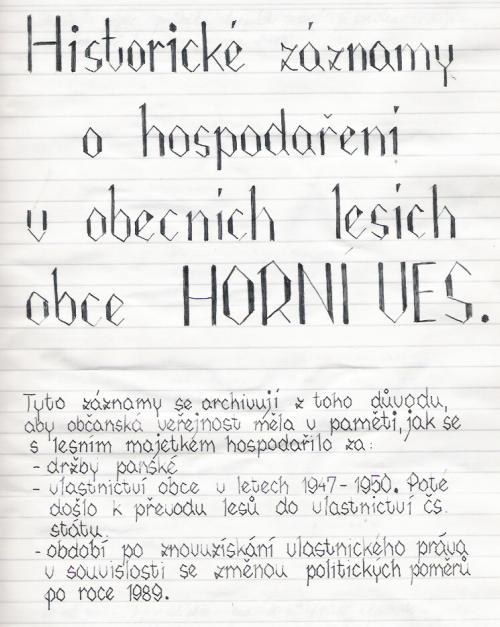 Historické záznamy
o hospodaření
v obecních lesích
obce HORNÍ VES.
Tyto záznamy se archivují z toho důvodu,
aby občanská veřejnost měla v paměti, jak se
s lesním majetkem hospodařilo za:
- držby panské
- vlastnictví obce v letech 1947 - 1950. Poté
došlo k převodu lesů do vlastnictví čs.
státu
- období po znovuzískání vlastnického práva
v souvislosti se změnou politických poměrů
po roce 1989.